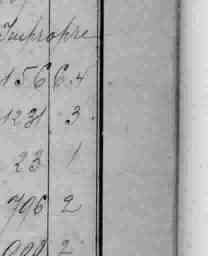 Impropre
1566.4
1231.3.
23 1
796 2
2